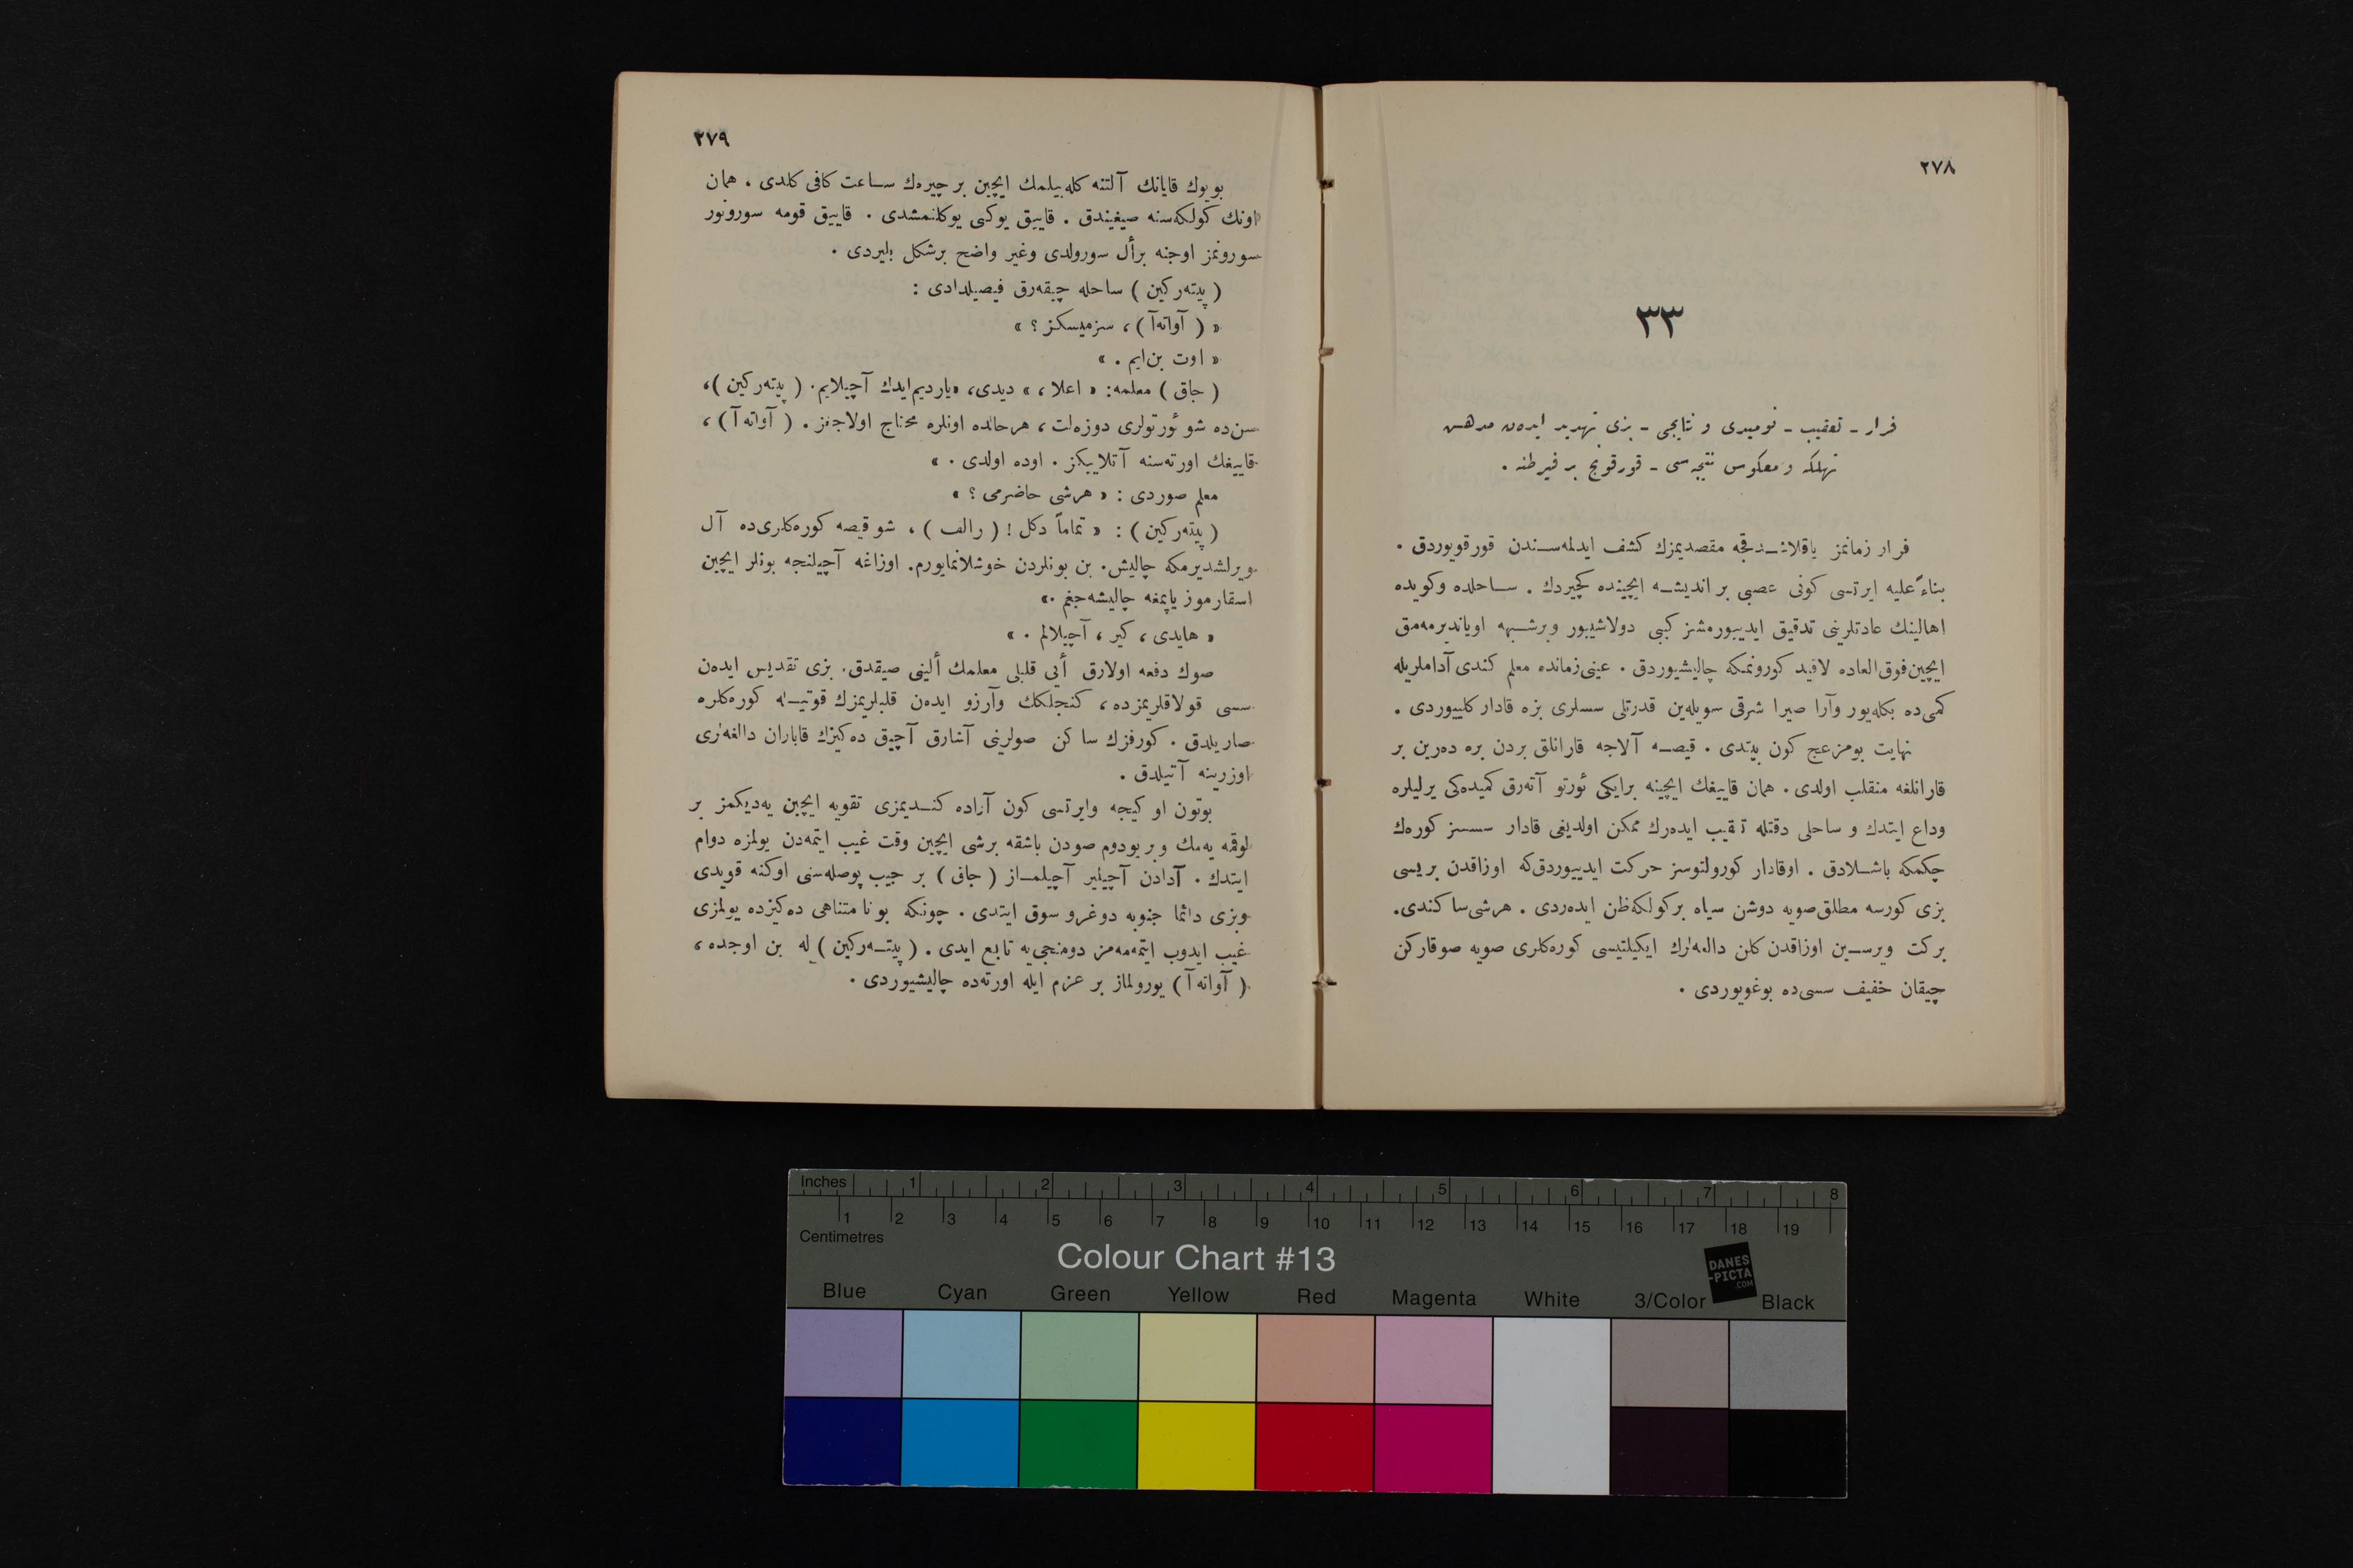 ٢٧٨
٣٣
فرار - تعقيب - نوميدى و نتايجى - بزى تهديد ايدەن مدهش
تهلكه و معكوس نتيجه‌سى - قورقونج بر فيرطنه .
فرار زمانمز ياقلاشـدقجه مقصديمزك كشف ايدلمه‌سـندن قورقويوردق .
بناءً عليه ايرتسى كونى عصبى بر انديشـه ايچينده كچيردك . سـاحلده وكويده
اهالينك عادتلرينى تدقيق ايدييورمشز كبى دولاشييور وبرشـبهه اويانديرمه‌مق
ايچين فوق‌العاده لاقيد كورونمكه چاليشيوردق . عينى زمانده معلم كندى آداملريله
كمى‌ده بكله‌يور وآرا صيرا شرقى سويله‌ين قدرتلى سسلرى بزه قادار كلييوردى .
نهايت بومزعج كون بيتدى . قيصـه آلاجه قارانلق بردن بره ده‌رين بر
قارانلغه منقلب اولدى . همان قاييغك ايچينه برايكى ئورتو آته‌رق كميده‌كى يرليلره
وداع ايتدك و ساحلى دقتله تعقيب ايده‌رك ممكن اولديغى قادار سسسز كوره‌ك
چكمكه باشـلادق . اوقادار كورولتوسز حركت ايدييوردق‌كه اوزاقدن بريسى
بزى كورسه مطلق صويه دوشن سياه بركولكه ظن ايده‌ردى . هرشى ساكندى.
بركت ويرسـين اوزاقدن كلن دالغه‌لرك ايكيلتيسى كوره‌كلرى صويه صوقاركن
چيقان خفيف سسى‌ده بوغويوردى .
٢٧٩
بويوك قايانك آلتنه كله‌بيلمك ايچين بر چيره‌ك سـاعت كافى كلدى ، همان
اونك كولكه‌سنه صيغيندق . قاييق يوكى يوكلنمشدى . قاييق قومه سورونور
سورونمز اوجنه برأل سورولدى وغير واضح برشكل بليردى .
( پيته‌ركين ) ساحله چيقه‌رق فيصيلدادى :
« ( آواته‌آ ) ، سزميسكز ؟ »
« اوت بن‌ايم . »
( جاق ) معلمه: « اعلا ، » ديدى، «يارديم ايدك آچيلايم. ( پيته‌ركين )،
سن‌ده شو ئورتولرى دوزه‌لت ، هرحالده اونلره محتاج اولاجغز . ( آواته‌آ ) ،
قاييغك اورته‌سنه آتلاييكز . اوده اولدى . »
معلم صوردى : « هرشى حاضرمى ؟ »
( پيته‌ركين ) : « تماماً دكل ! ( رالف ) ، شو قيصه كوره‌كلرى‌ده آل
ويرلشديرمكه چاليش. بن بونلردن خوشلانمايورم. اوزاغه آچيلنجه بونلر ايچين
اسقارموز ياپمغه چاليشه‌جغم .»
« هايدى ، كير ، آچيلالم . »
صوك دفعه اولارق أيى قلبلى معلمك ألينى صيقدق. بزى تقديس ايده‌ن
سسى قولاقلريمزده ، كنجلكك وآرزو ايده‌ن قلبلريمزك قوتيـله كوره‌كلره
صاريلدق . كورفزك ساكن صولرينى آشارق آچيق ده‌كيزك قاباران دالغه‌لرى
اوزرينه آتيلدق .
بوتون او كيجه وايرتسى كون آراده كنـديمزى تقويه ايچين يه‌ديكمز بر
لوقمه يه‌مك وبر يودوم صودن باشقه برشى ايچين وقت غيب ايتمه‌دن يولمزه دوام
ايتدك . آدادن آچيلير آچيلمـاز ( جاق ) بر جيب پوصله‌سنى اوكنه قويدى
وبزى دائما جنوبه دوغرو سوق ايتدى . چونكه بو نا متناهى ده‌كيزده يولمزى
غيب ايدوب ايتمه‌مه‌مز دومنجى‌يه تابع ايدى . ( پيتـه‌ركين ) له بن اوجده ،
( آواته‌آ ) يورولماز بر عزم ايله اورته‌ده چاليشيوردى .
Inches 1 2 3 4 5 6 7 8
1 2 3 4 5 6 7 8 9 10 11 12 13 14 15 16 17 18 19
Centimetres
Colour Chart #13
DANES
-PICTA
.COM
Blue Cyan Green Yellow Red Magenta White 3/Color Black